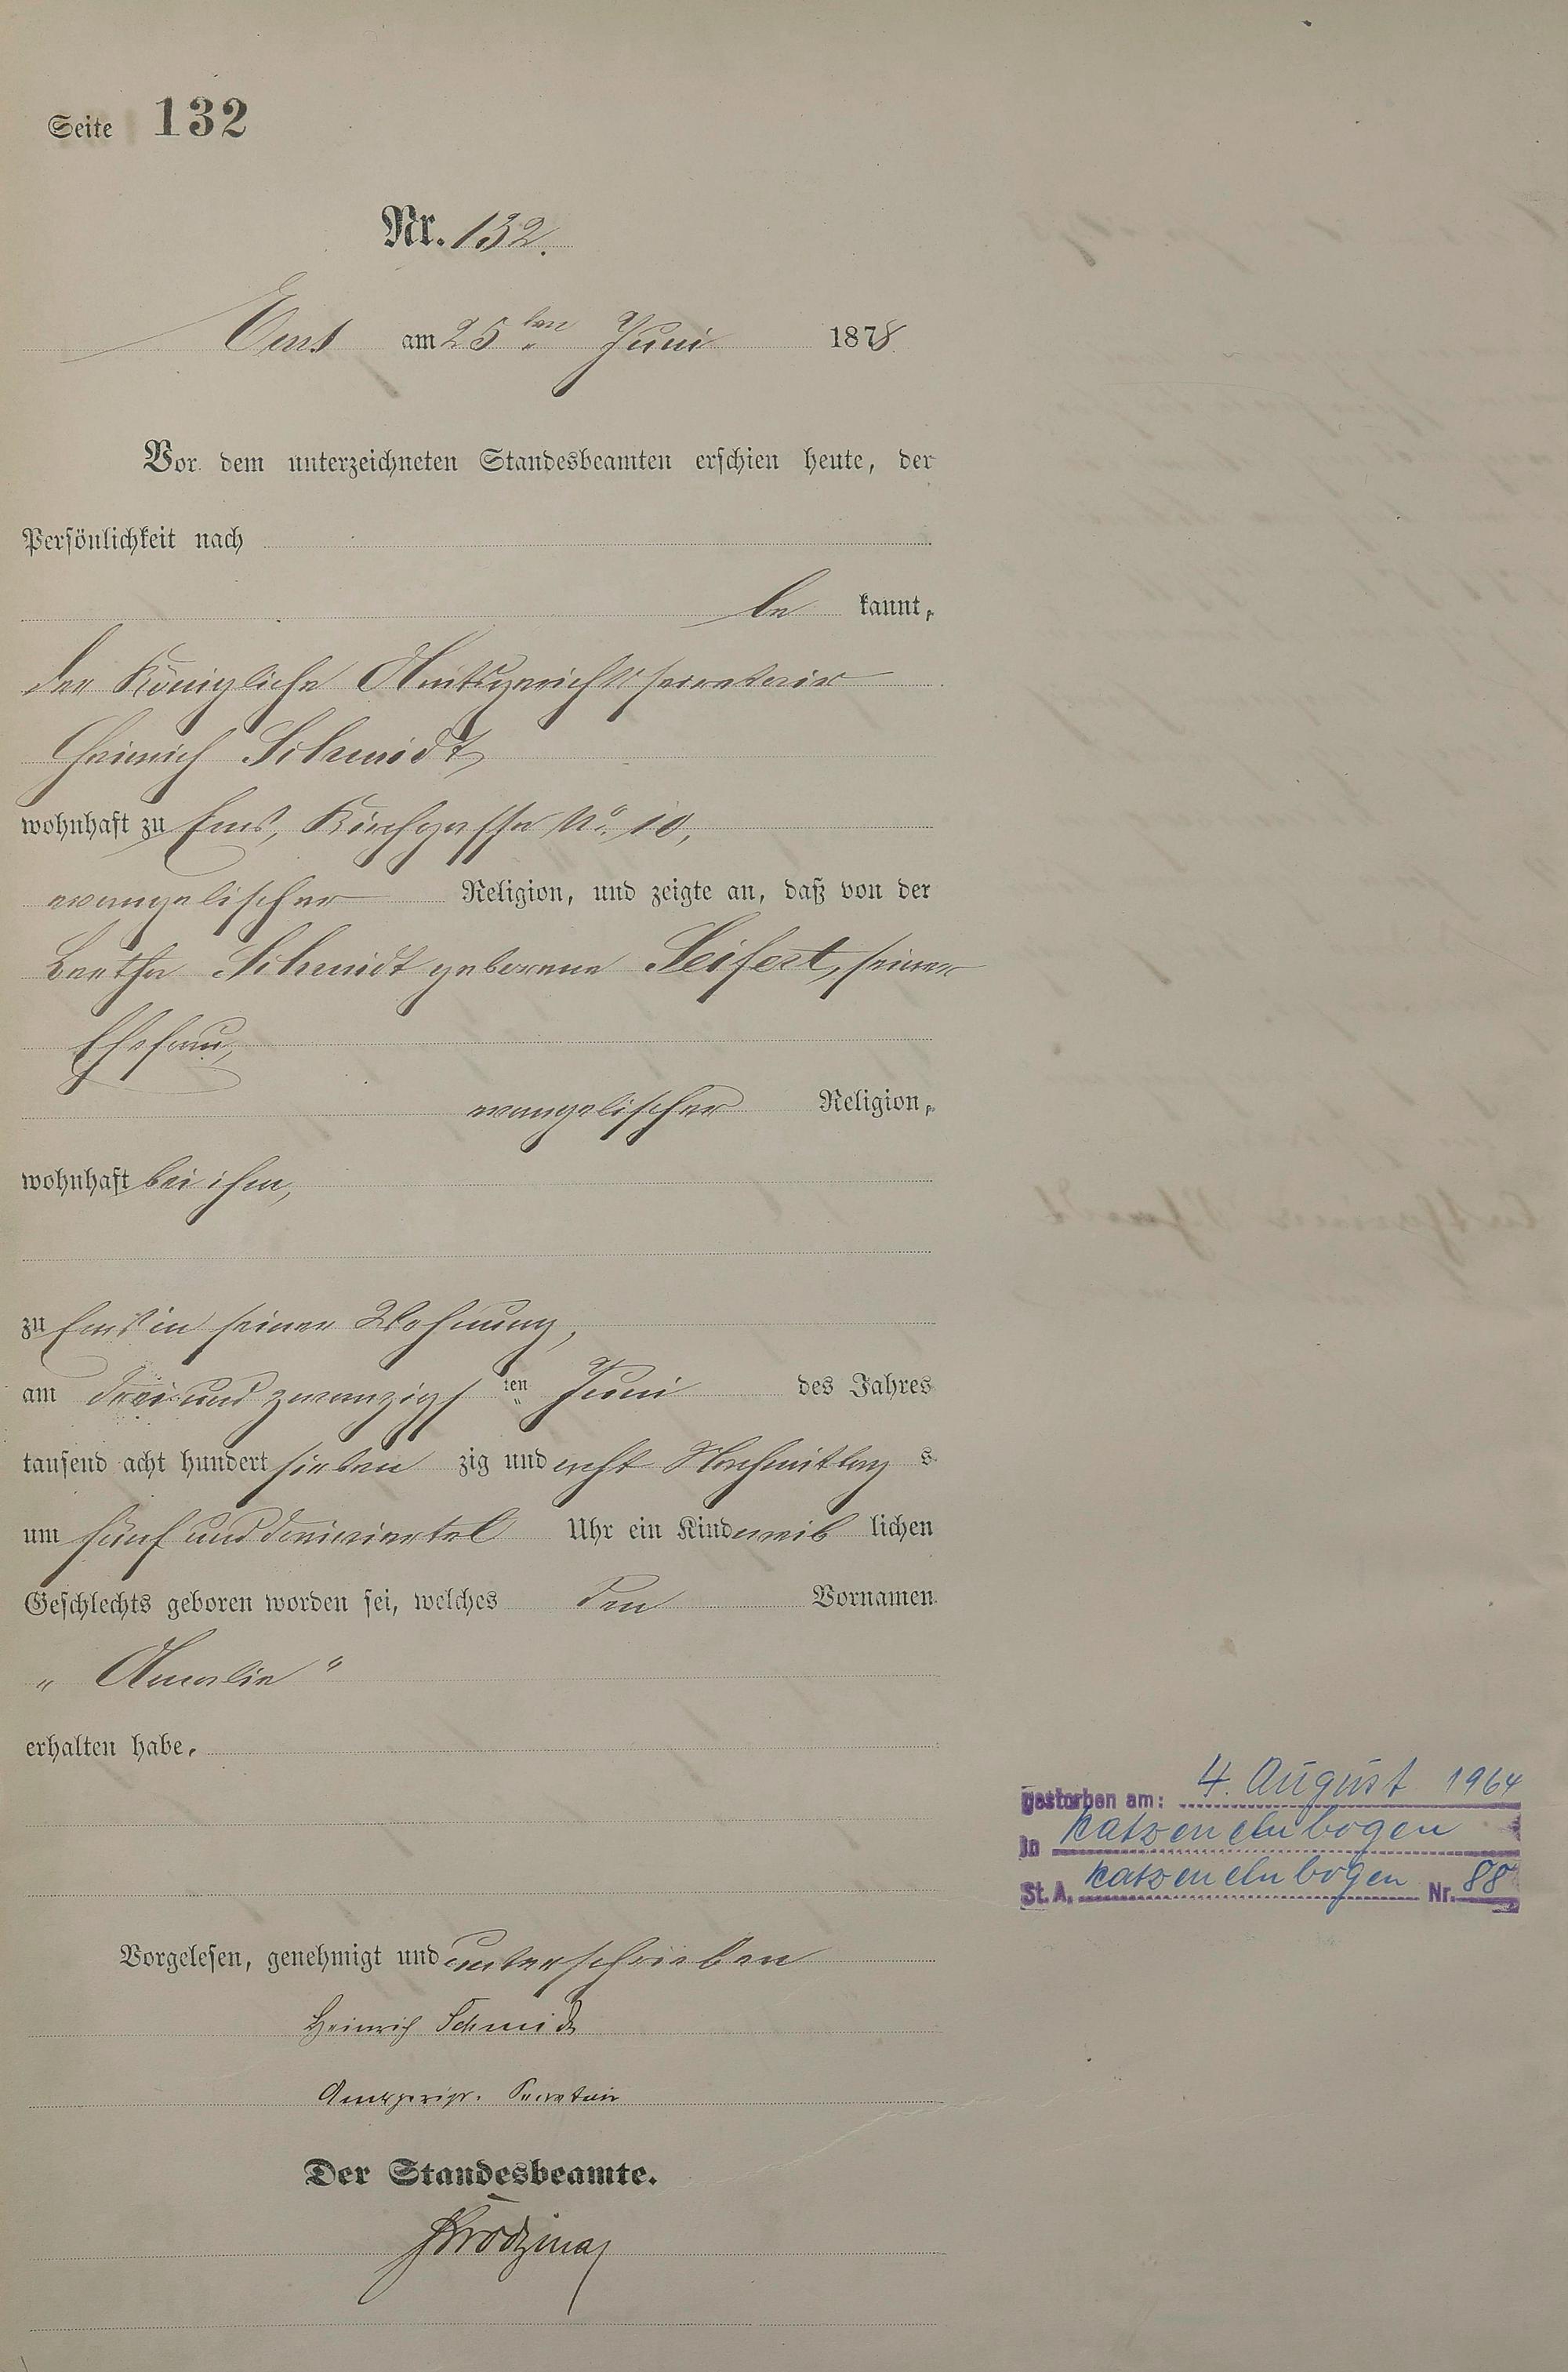 Seite 132
Nr. 132.
Ems am 25ten Juni 1878
Vor dem unterzeichneten Standesbeamten erschien heute, der
Persönlichkeit nach
be kannt,
der Königliche Amtsgerichtssecretair
Heinrich Schmidt,
wohnhaft zu Ems, Kirchgasse No. 10,
evangelischer Religion, und zeigte an, daß von der
Bertha Schmidt geborene Seifert, seiner
Ehefrau,
evangelischer Religion,
wohnhaft bei ihm,
zu Ems in seiner Wohnung,
am drei und zwanzigsten Juni des Jahres
tausend acht hundert sieben zig und acht Nachmittag s
um fünf und dreiviertel Uhr ein Kind weib lichen
Geschlechts geboren worden sei, welches den Vornamen
„ Amalie “
erhalten habe.
gestorben am: 4. August 1964
in Katzenelnbogen
St. A. Katzenelnbogen Nr. 88
Vorgelesen, genehmigt und unterschrieben
Heinrich Schmidt
Amtsgerichts. Secretair
Der Standesbeamte.